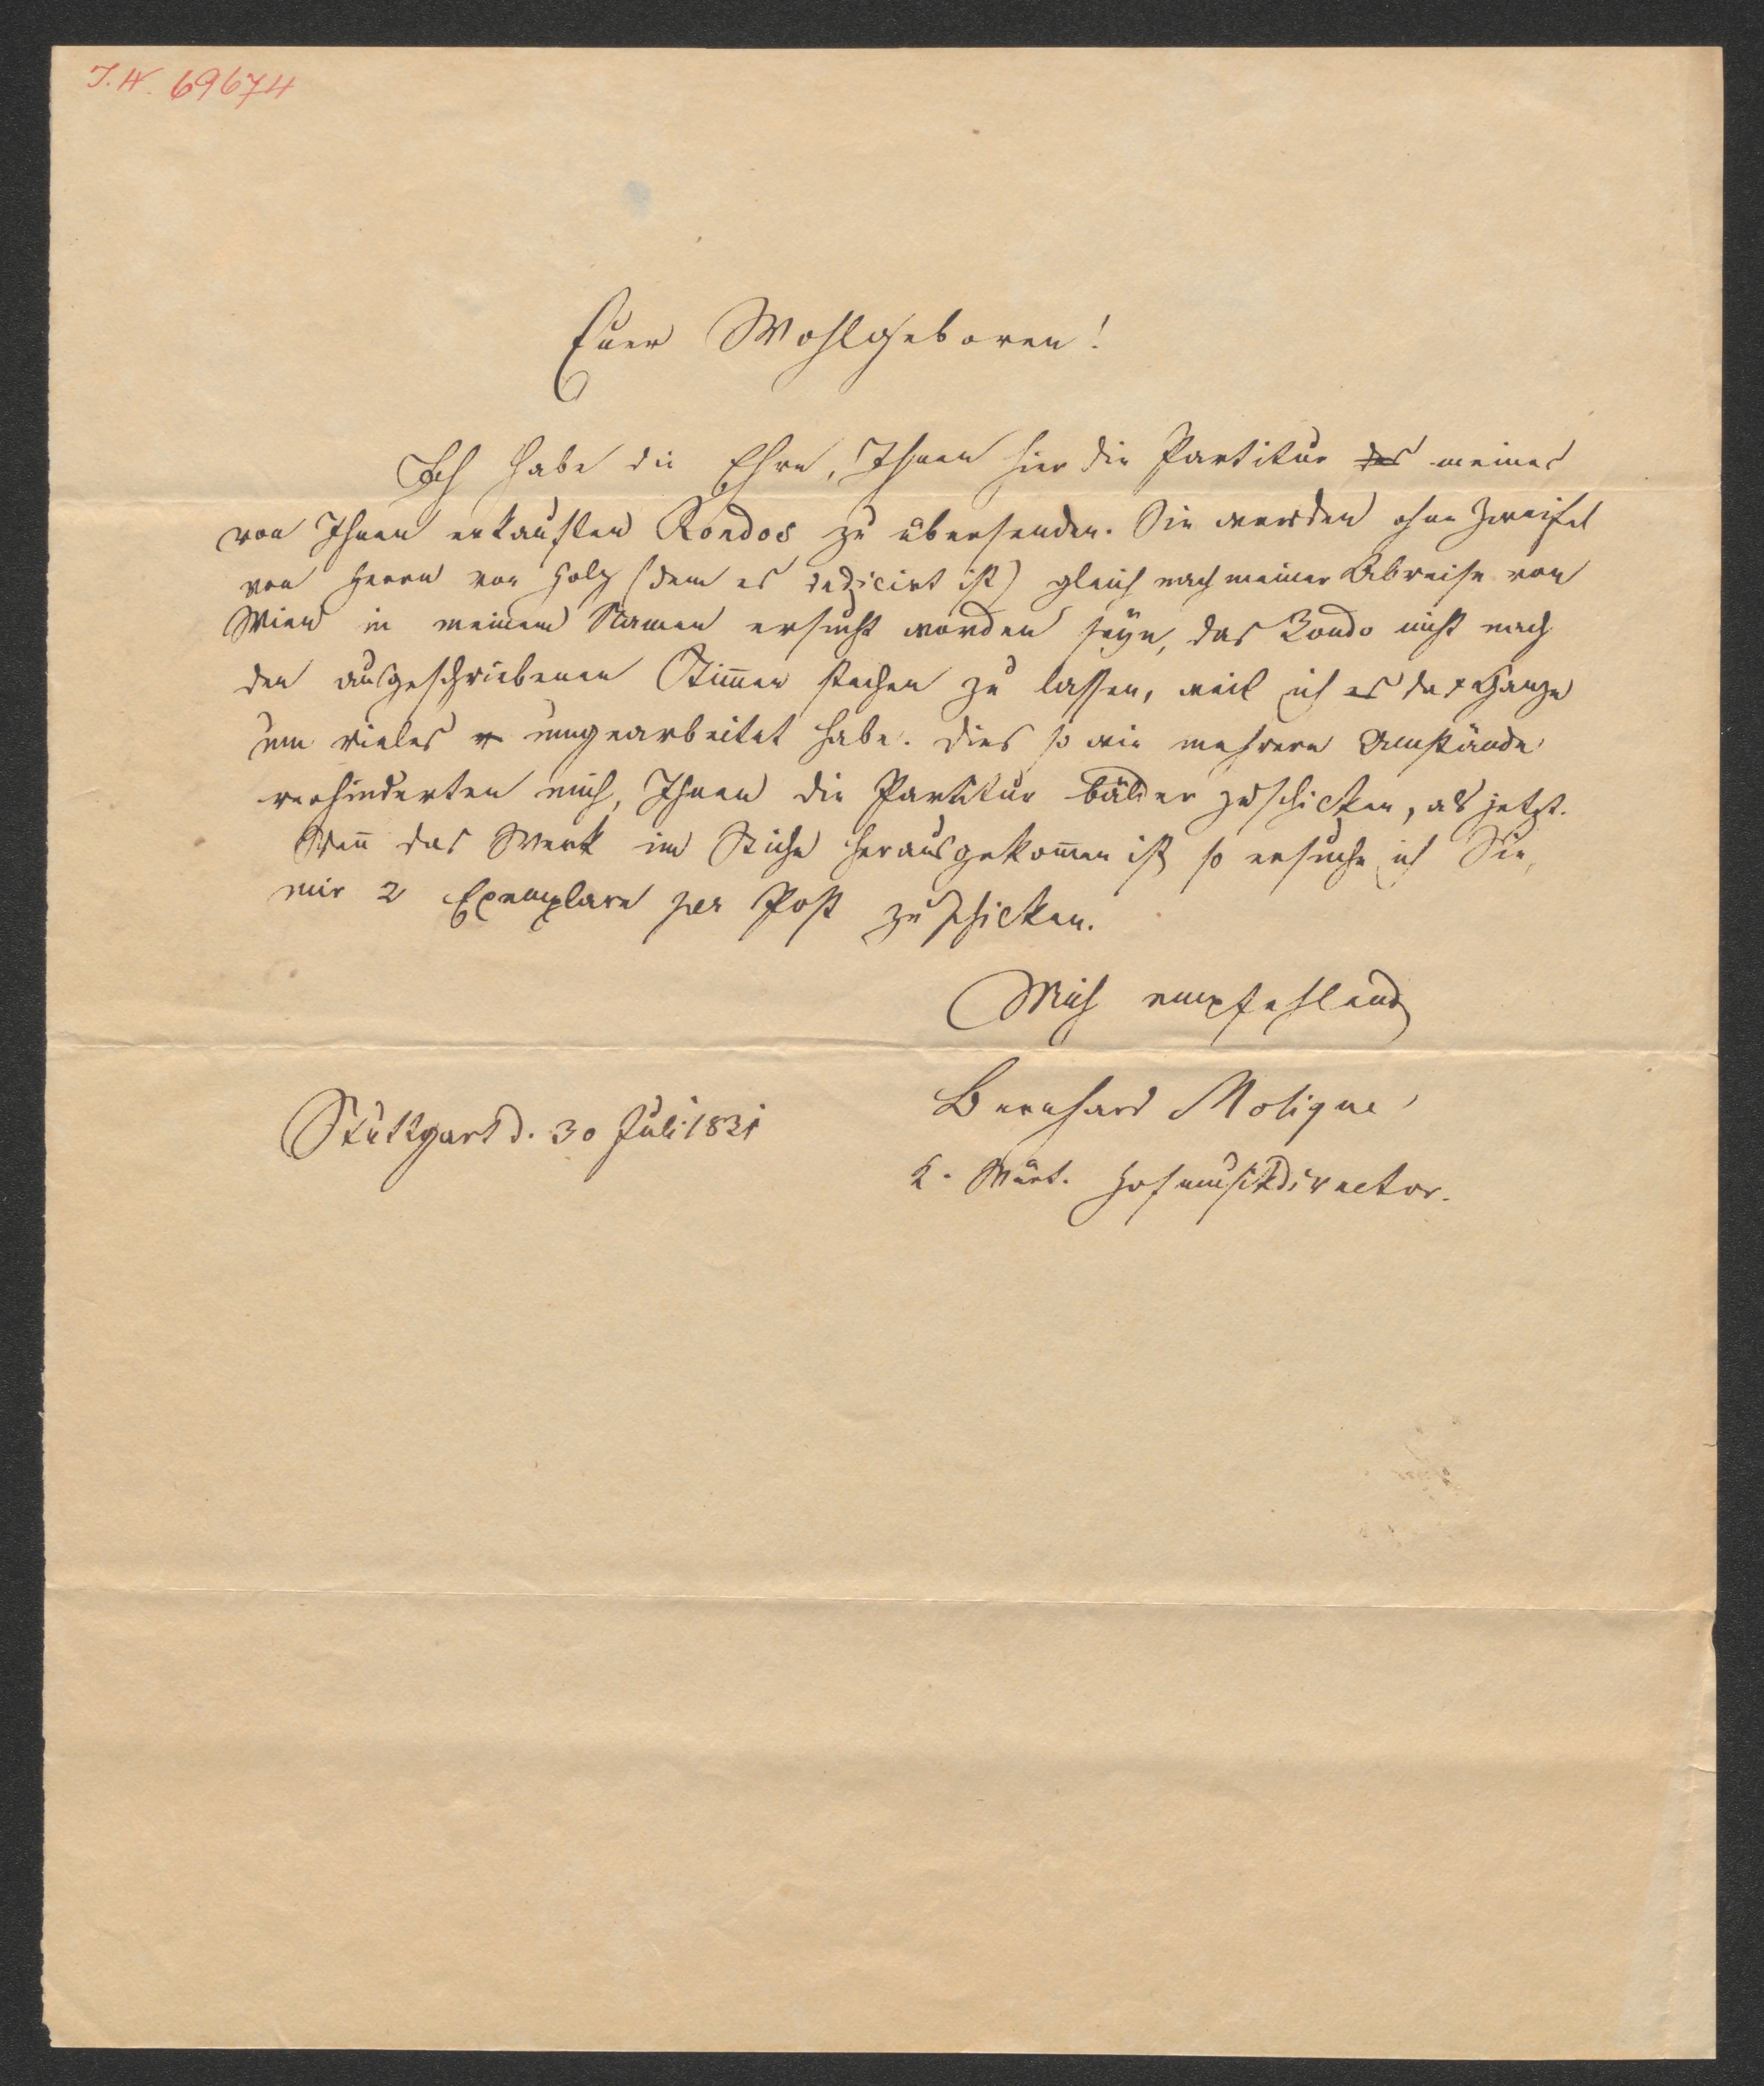 J. N. 69674
Euer Wohlgeboren!
Ich habe die Ehre, Ihnen hier die Partitur des meines
von Ihnen erkauften Rondos zu übersenden. Sie werden ohne Zweifel
von Herrn von Holz (dem es dedicirt ist) gleich nach meiner Abreise von
Wien in meinem Namen ersucht worden seÿn, das Rondo nicht nach
den ausgeschriebenen Stim̄en stechen zu lassen, weil ich es das Ganze
um vieles umgearbeitet habe. Dies so wie mehrere Umstände
verhinderten mich, Ihnen die Partitur bälder zu schicken, als jetzt.
Wen̄ das Werk im Stiche herausgekom̄en ist, so ersuche ich Sie,
mir 2 Exemplare per Post zu schicken.
Mich empfehlend
Bernhard Molique
Stuttgart d. 30 Juli 1831
K. Würt. Hofmusikdirector.